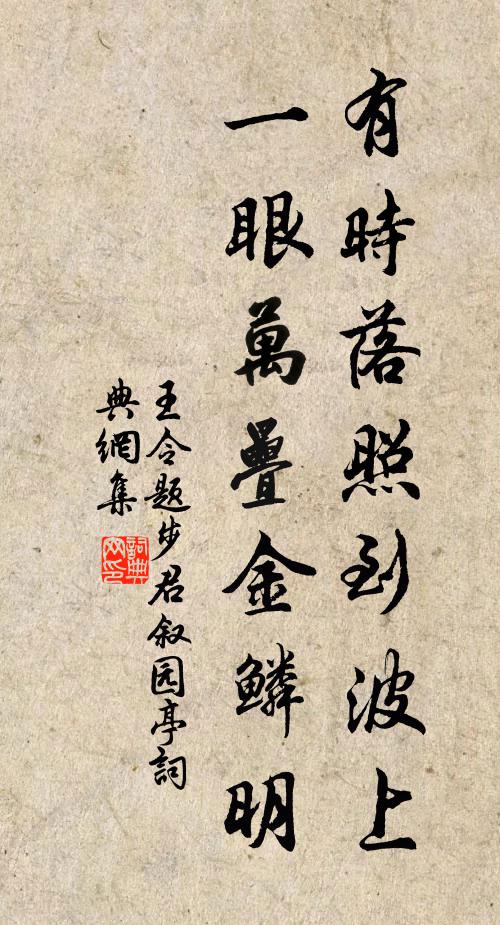 有時落照到波上
一眼萬疊金鱗明
王令题步君叙园亭詞
典網集
詞典
网印